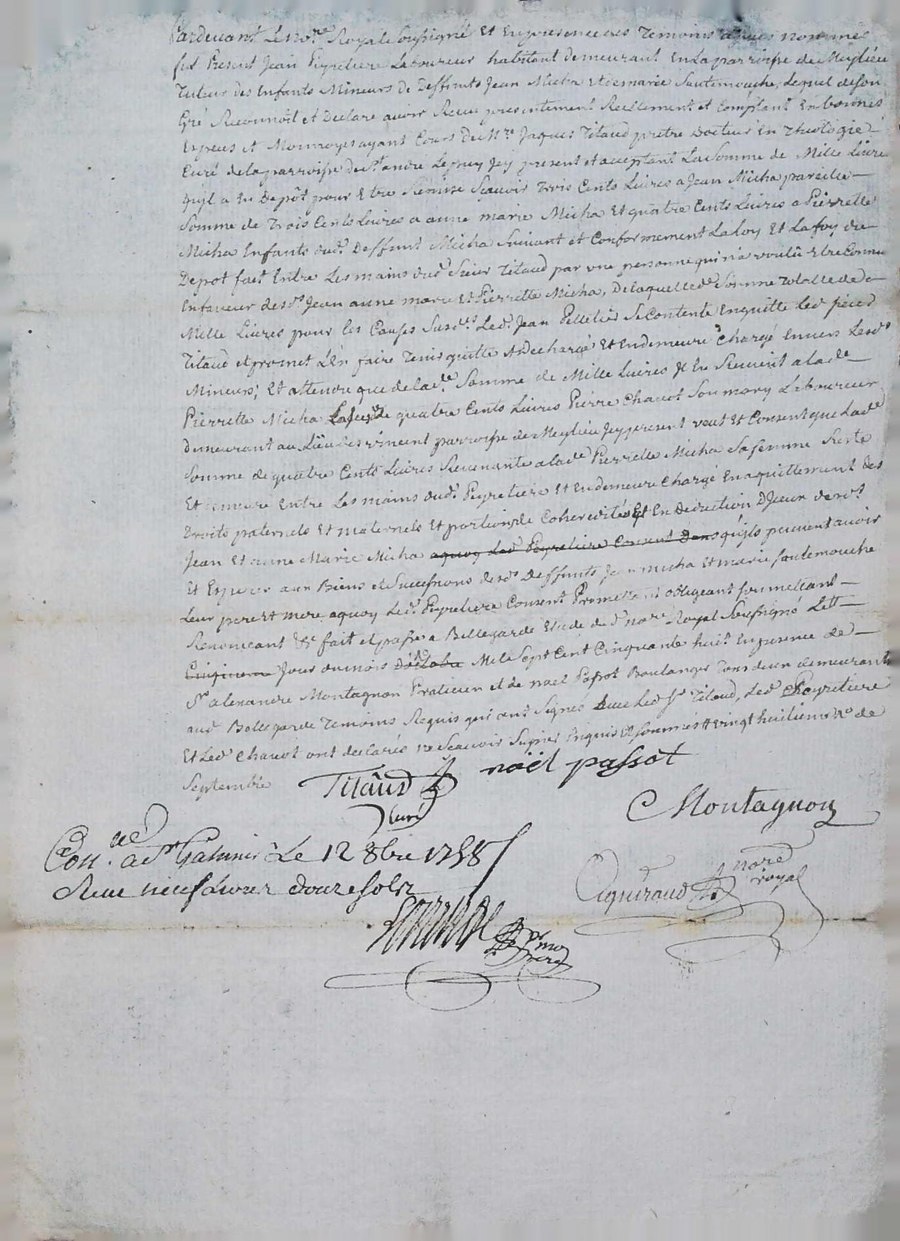 Pardevant Le no.re Royal Soussigné Et En presence des Temoins apres nommés
fut Present Jean Peyretiere Laboureur habitant demeurant En La parroisse de Meylieu
Tuteur des Enfants Mineurs de Deffunts Jean Micha et de marie Fautemouche, Lequel de son
Gré Reconnoit et Declare avoir Receu presentement Reellement et Comptant En bonnes
Especes et Monnoyes ayant Cours de M.re Jaques Titaud pretre Docteur En Theologie
Curé de la parroisse de S.t andré Le puy Jcy present et acceptant La Somme de Mille Livres
quil a En Depot pour Etre Remise Scavoir Trois Cents Livres a Jean Micha pareille
Somme de Trois Cents Livres a anne marie Micha Et quatre Cents Livres a Pierrette
Micha Enfants dud.t Deffunt Micha Suivant et Conformement La Loy Et La foy du
Depot fait Entre Les mains dud.t Sieur Titaud par une personne qui n'a voulû Etre Connue
En faveur desd.ts Jean anne marie Et Pierrette Micha, De laquelle d.e Somme Totalle de
Mille Livres pour les Causes Susd.es Led.t Jean Pelletier Se Contente En quitte Led.t
Titaud et promet L'En faire Tenir quitte & Decharge Et En demeure Chargé Envers Lesd.ts
Mineurs; Et attendu que de lad.e Somme de Mille Livres Il En Revient a lad.e
Pierrette Micha Celle de quatre Cents Livres Pierre Chavot Son mary Laboureur
demeurant au Lieu de S.t vincent parroisse de Meylieu Jcy present veut Et Consent que Lad.e
Somme de quatre Cents Livres Revenante a lad.e Pierrette Micha Sa femme Reste
Et demeure Entre Les mains dud.t Peyretiere Et En demeure Chargé En aquittement des
Droits paternels Et maternels Et portion de Coheredités Et En Deduction D'Jceux desd.ts
Jean Et anne Marie Micha aquoy Led.t Peyretiere Consent Dans quils peuvent avoir
Et Esperer aux Biens et Successions desd.ts Deffunts Jean micha Et marie fautemouche
Leur pere et mere aquoy Led.t Peyretiere Consent Promettant obligeant soumettant
Renoncant &c fait et passé a Bellegarde Etude de d.t no.re Royal Soussigné Le
Cinquieme Jour du mois D'octobre Mil Sept Cent Cinquante huit En presence de
S.r alexandre Montagnon Praticien et de noel Passot Boulanger Tous deux demeurants
aud.t Bellegarde Temoins Requis qui ont Signés avec Led.t S.r Titaud, Led.t Peyretiere
Et Led.t Chavot ont declarés ne Scavoir Signer Enquis Et Sommés vingt huitieme de
Septembre
Titaud noël passot
Curé
Montagnon
Con.lé a S.t Galmier Le 12 8bre 1758
Receu neuf Livres douze sols
Ciguiraud nore
royal